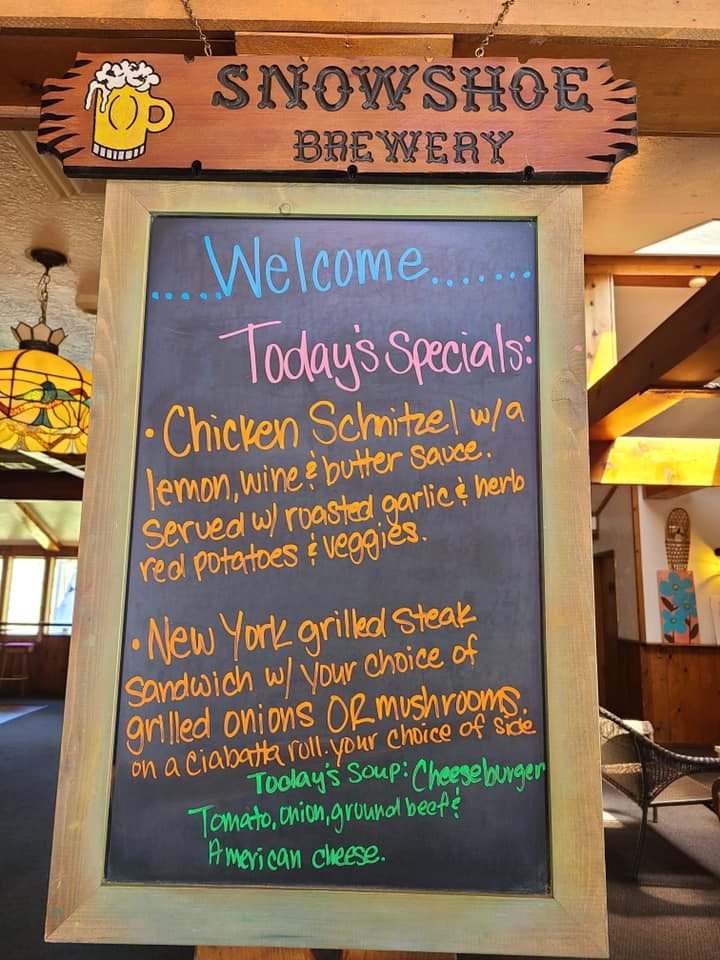 SNOWSHOE
BREWERY
....Welcome.......
Today's Specials:
• Chicken Schnitzel w/a
lemon, wine & butter sauce.
Served w/ roasted garlic & herb
red potatoes & veggies.
• New York grilled steak
Sandwich w/ your choice of
grilled onions OR mushrooms.
on a ciabatta roll. your choice of side
Today's Soup: Cheeseburger
Tomato, onion, ground beef &
American cheese.